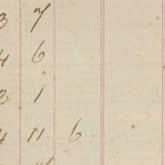 3 7
4 6
3 1
4 11 6